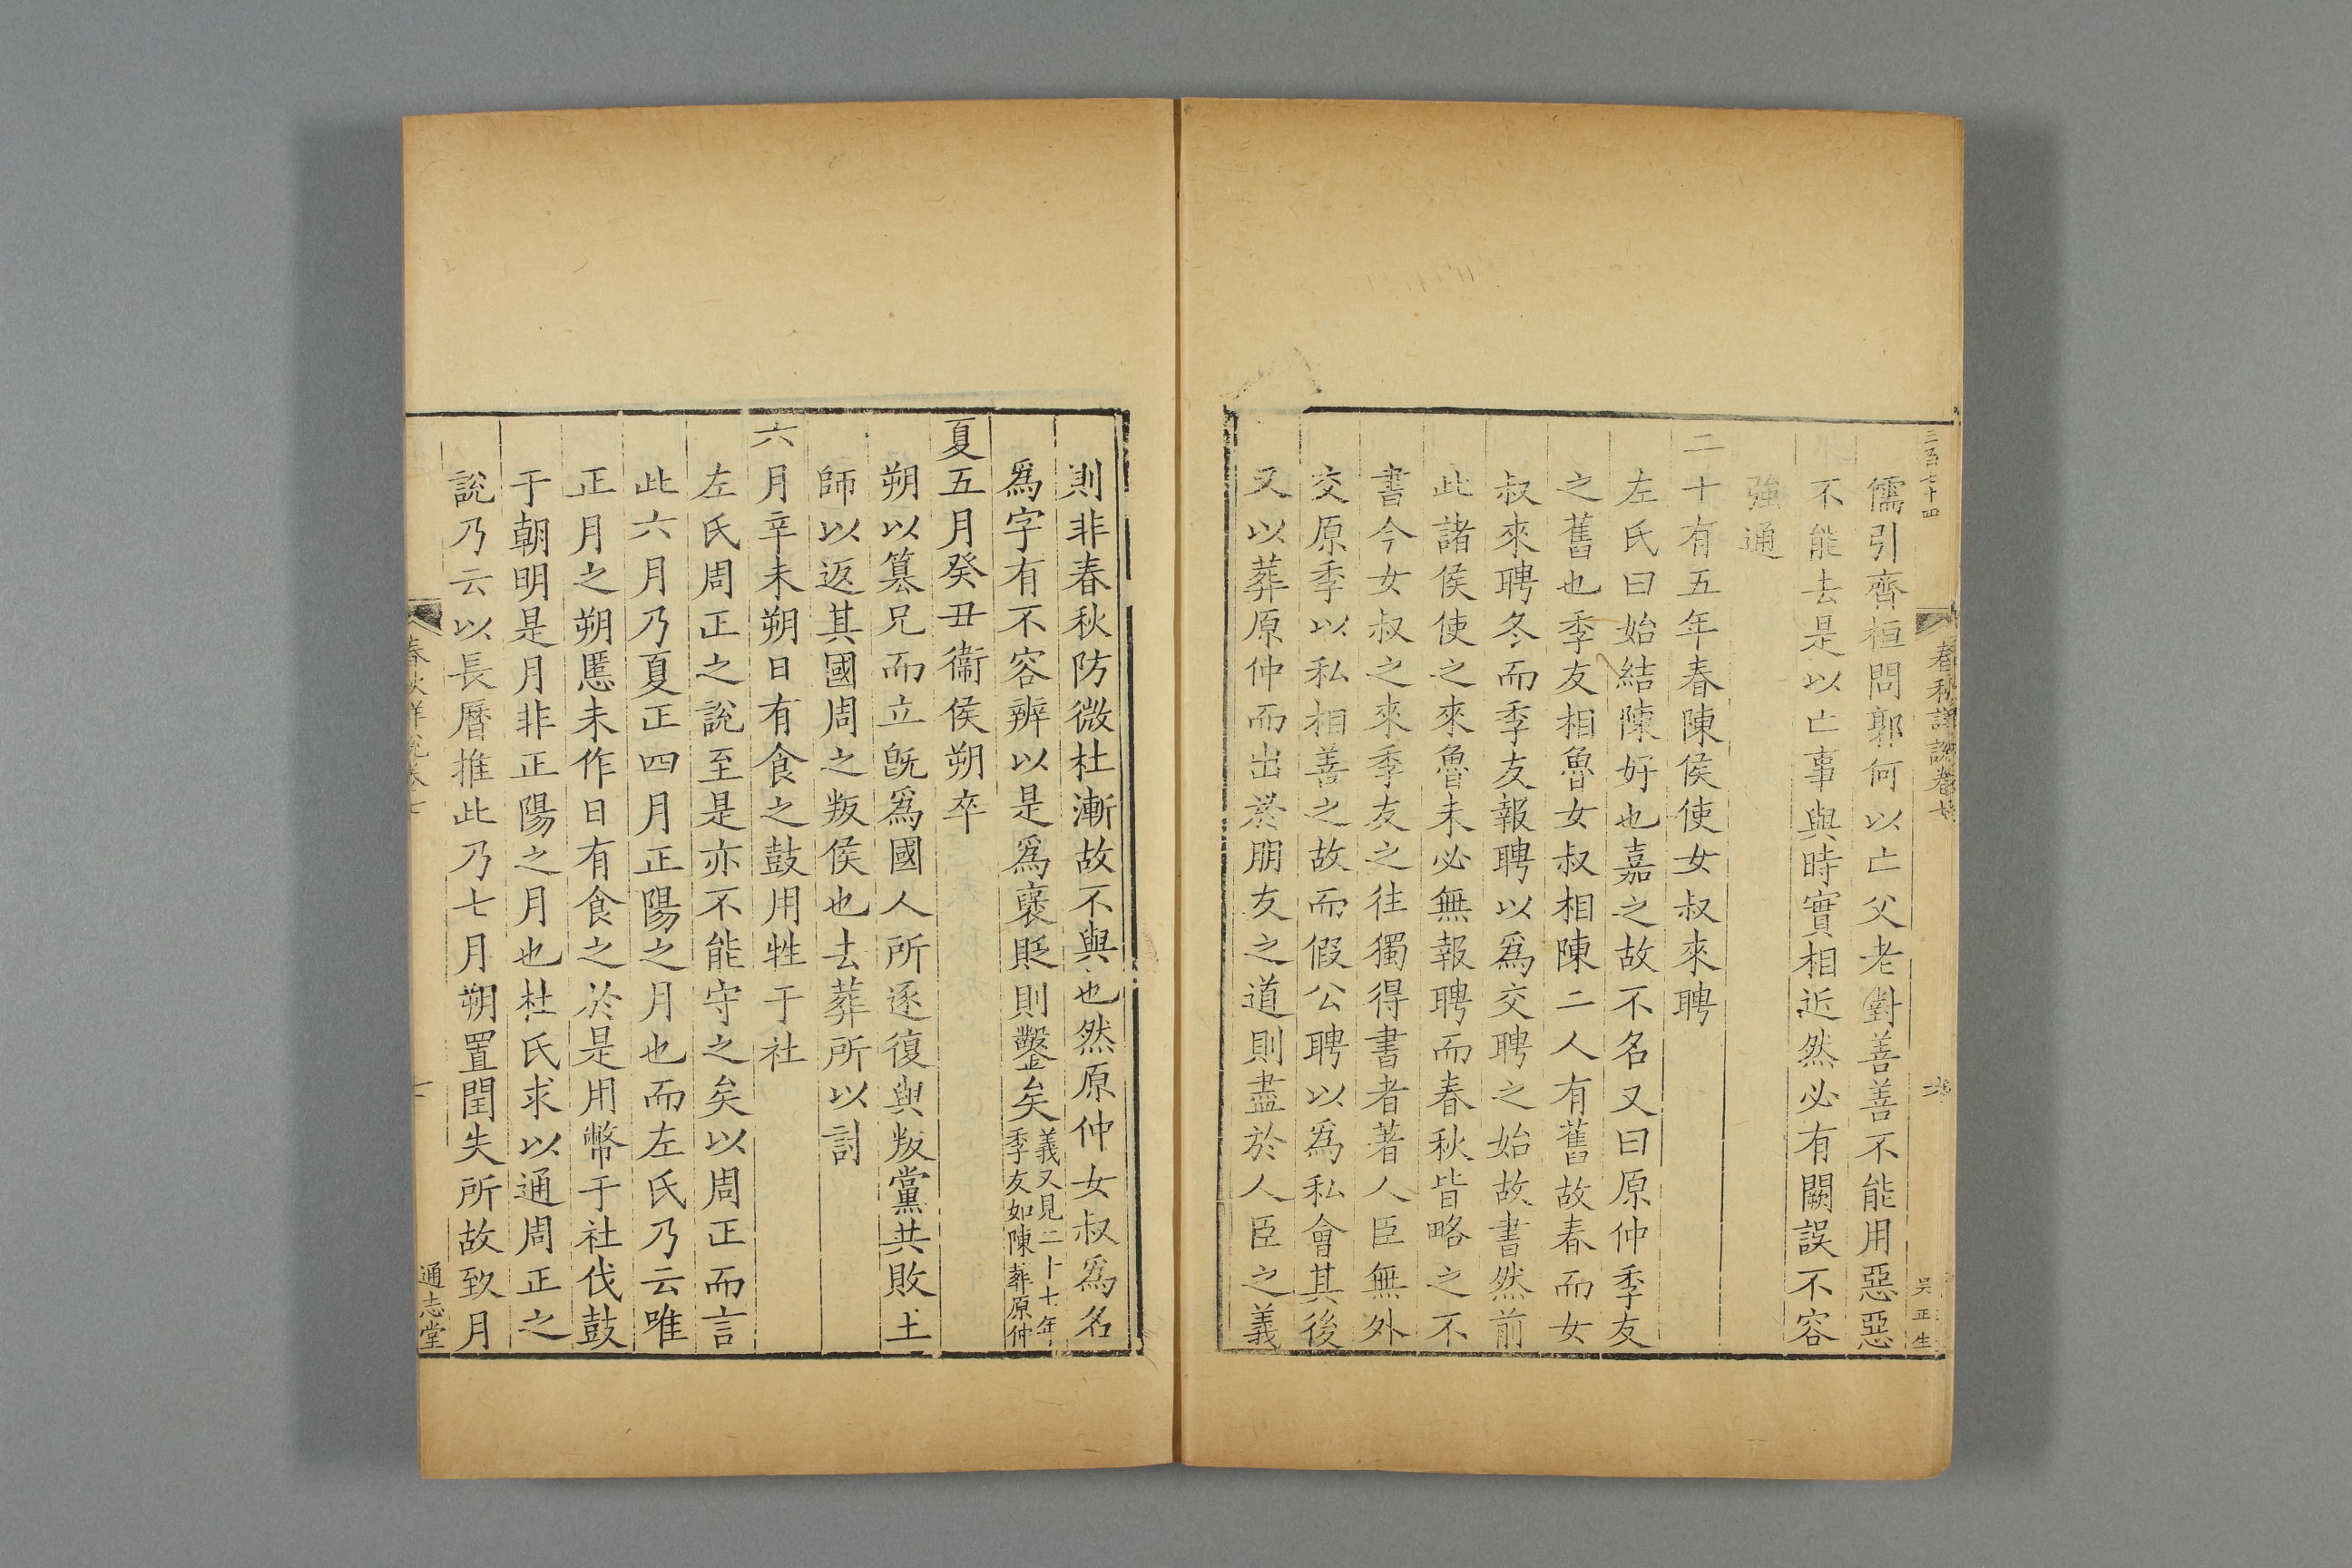 三百七十四
春秋詳說卷
吳正生
儒引齊桓問郭何以亡父老對善善不能用惡惡
不能去是以亡事與時實相近然必有闕誤不容
強通
二十有五年春陳侯使女叔來聘
左氏曰始結陳好也嘉之故不名又曰原仲季友
之舊也季友相魯女叔相陳二人有舊故春而女
叔來聘冬而季友報聘以爲交聘之始故書然前
此諸侯使之來魯未必無報聘而春秋皆略之不
書今女叔之來季友之往獨得書者著人臣無外
交原季以私相善之故而假公聘以爲私會其後
又以葬原仲而出於朋友之道則盡於人臣之義
則非春秋防微杜漸故不與也然原仲女叔爲名
爲字有不容辨以是爲襃貶則鑿矣義又見二十七年季友如陳葬原仲
夏五月癸丑衞侯朔卒
朔以篡兄而立旣爲國人所逐復與叛黨共敗王
師以返其國周之叛侯也去葬所以討
六月辛未朔日有食之鼓用牲于社
左氏周正之說至是亦不能守之矣以周正而言
此六月乃夏正四月正陽之月也而左氏乃云唯
正月之朔慝未作日有食之於是用幣于社伐鼓
于朝明是月非正陽之月也杜氏求以通周正之
說乃云以長曆推此乃七月朔置閏失所故致月
春秋詳說卷
通志堂